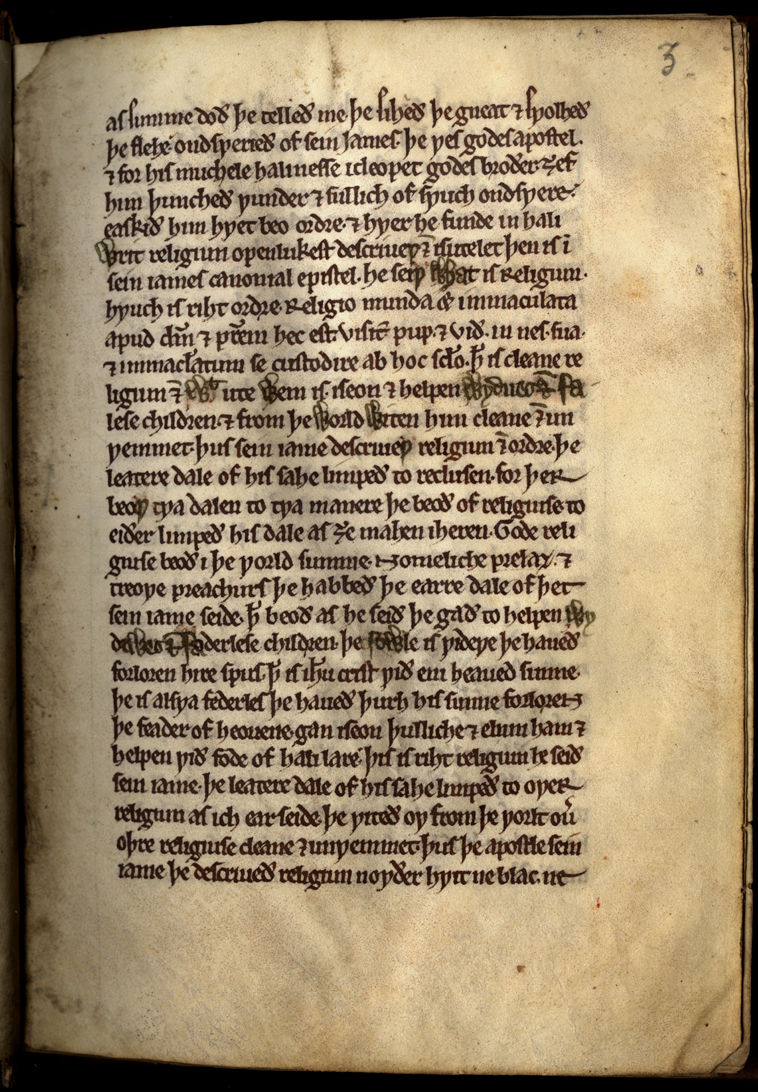 as summe doð þe telleð me. þe siheð þe gneat ⁊ sƿolheð
þe flehe. ondsƿerieð of sein Iames. þe ƿes godes apostel.
⁊ for his muchele halinesse icleopet godes broðer. ȝef
him þuncheð ƿunder ⁊ sullich of sƿuch ondsƿere.
easkið him hƿet beo ordre. ⁊ hƿer he funde in hali
Writ religiun openlukest descriueƿ ⁊̄ isutelet þen is ī
sein iames canonial epistel. he seiƿ What is Religiun.
hƿuch is riht ordre. Religio munda & immaculata
apud dm̄ ⁊ pr̄em hec est. visit̄ pup. ⁊ vid. in nes. sua.
⁊ immac̄latum se custodire ab hoc sc̄lo. þ̄ is cleane re
ligiun ⁊̄ iƿite Wem is iseon ⁊ helpen
lese children. ⁊ from þe World Witen him cleane ⁊̄ un
ƿemmet. þus sein iame descriueƿ religiun ⁊̄ ordre. þe
leatere dale of his sahe limpeð to reclusen. for þer
beoƿ tƿa dalen to tƿa manere þe beoð of religiuse. to
eiðer limpeð his dale as ȝe mahen iheren. Gode reli
giuse beoð i þe ƿorld summe. nomeliche prelaz. ⁊
treoƿe preachurs þe habbeð þe earre dale of þet
sein iame seide. þ̄ beoð as he seið þe gað to helpen Wy
deWes ⁊ faderlese children. þe saWle is ƿideƿe þe haueð
forloren hire spus. þ̄ is ih̄u crist ƿið eni heaued sunne.
þe is alsƿa federles þe haueð þurh his sunne forloren
þe feader of heouene. gan iseon þulliche ⁊ elnin ham ⁊
helpen ƿið fode of hali lare. þis is riht religiun he seið
sein iame. þe leatere dale of his sahe limpeð to oƿer
religiun as ich ear seide. þe ƿiteð oƿ from þe ƿorlt ou̾
oþre religiuse cleane ⁊ unƿemmet. þus þe apostle sein
iame þe descriueð religiun noƿðer hƿit ne blac. ne